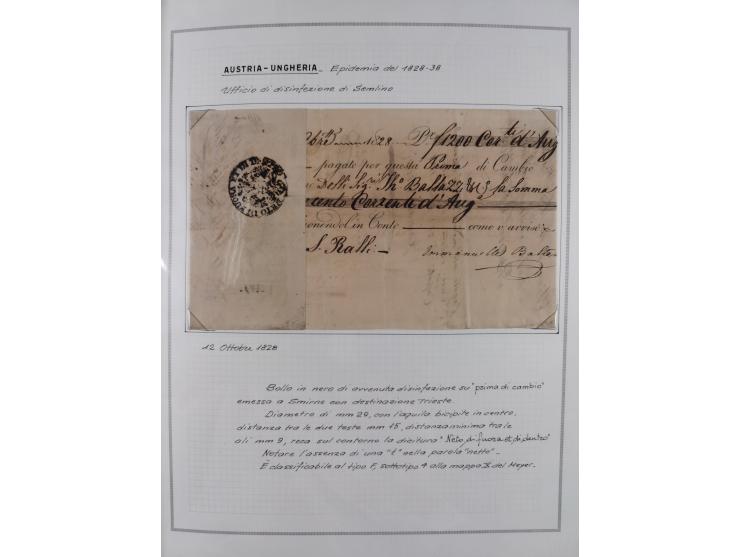 AUSTRIA-UNGHERIA_ Epidemia del 1828-38
Ufficio di disinfezione di Semlino
1828 Pr f 1200 Cor.ti d'Aug
pagate per questa Prima di Cambio
Delli Sig.ri Th.o Baltazzi la Somma
cento Corrente d'Aug.
ponendol in Conto come v avviso
S. Ralli:
Emmanuelle Baltazzi
12 Ottobre 1828
Bollo in nero di avvenuta disinfezione su "prima di cambio"
emessa a Smirne con destinazione Trieste.
Diametro di mm 29, con l'aquila bicipite in centro,
distanza tra le due teste mm 15, distanza minima tra le
ali mm 9, reca sul contorno la dicitura "Neto di fuora et di dentro"
Notare l'assenza di una "t" nella parola "netto"_
È classificabile al tipo F, sottotipo 4 alla mappa X del Meyer.